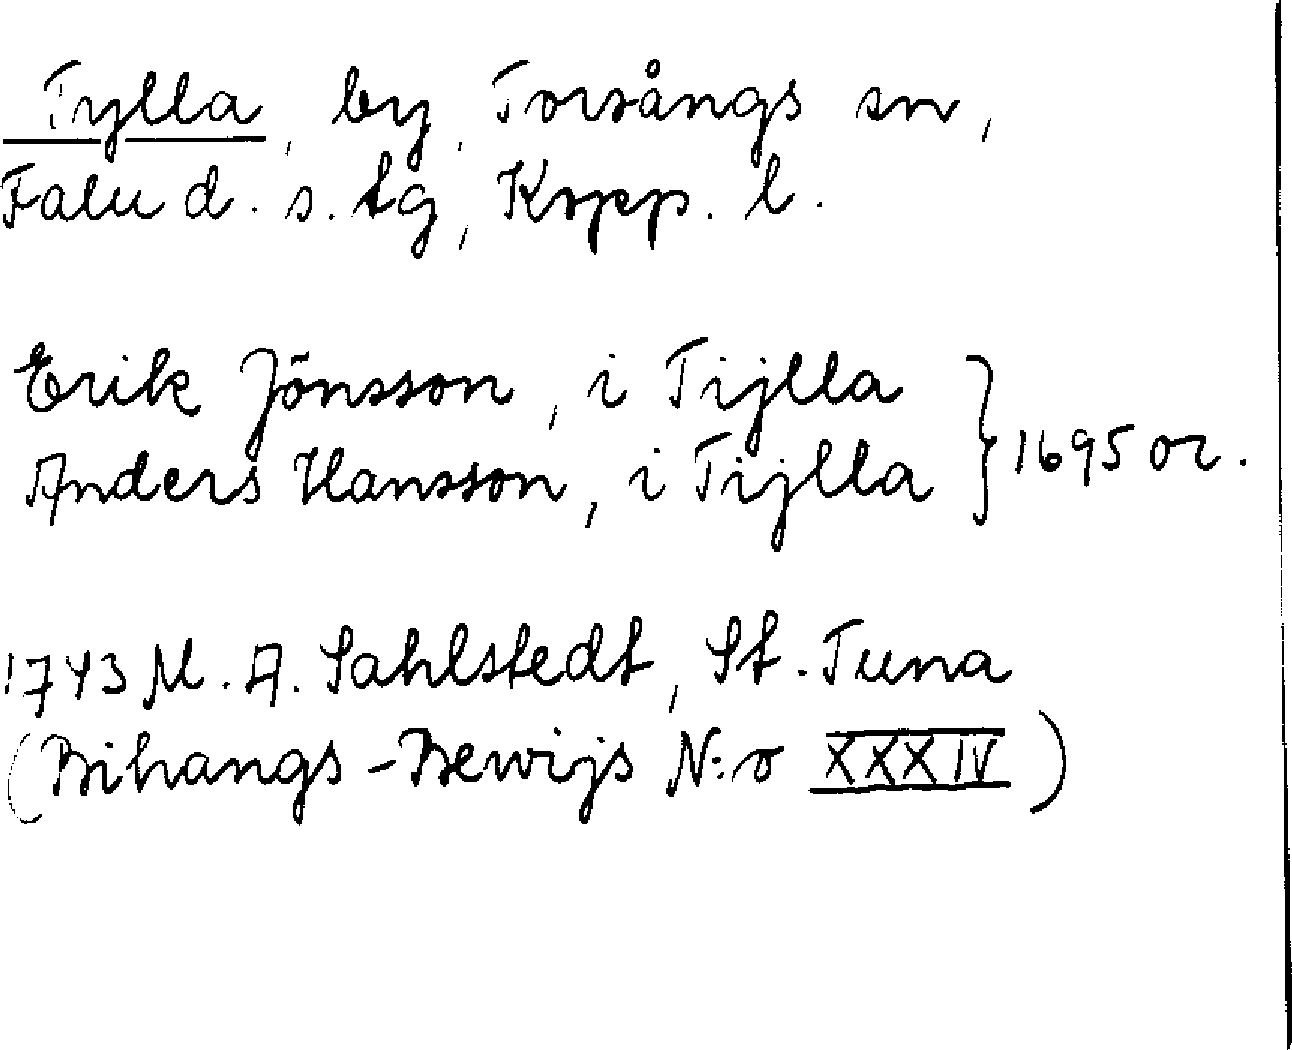 Tylla, by, Torsångs sn,
Falu d. s. tg, Kopp. l.
Erik Jönsson, i Tijlla
Anders Hansson, i Tijlla } 1695 or.
1743 M. A. Sahlstedt, St. Tuna
(Bihangs-Bewijs N:o XXXIV)